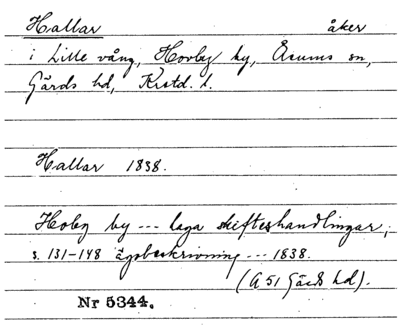 Hallar åker
i Lille vång, Hovby by, Åsums sn,
Gärds hd, Krstd. l.
Hallar 1838.
Hoby by --- laga skifteshandlingar,
s. 131-148 ägobeskrivning --- 1838.
(A 51 Gärds hd).
Nr 5344.